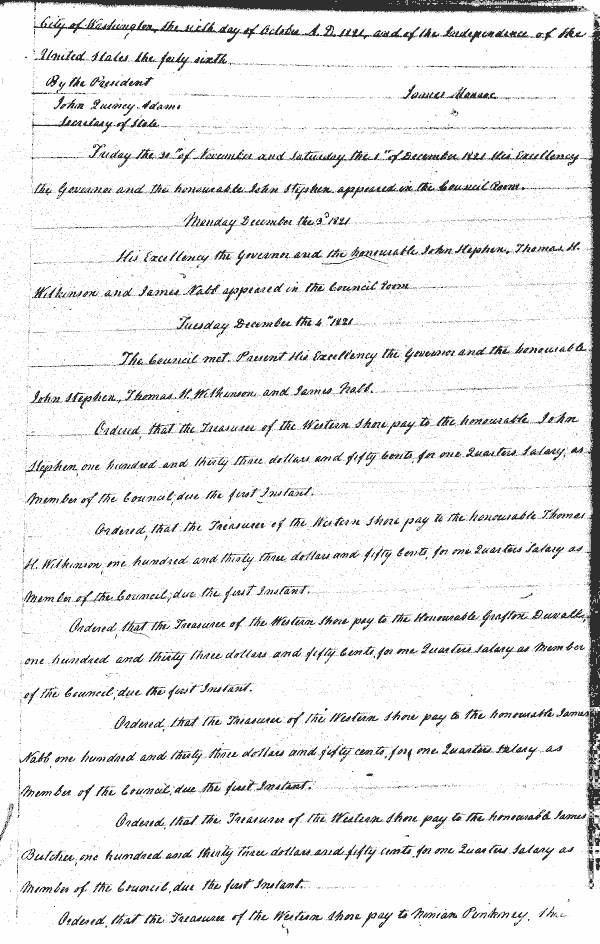 City of Washington, the sixth day of October A. D. 1821, and of the Independence of the
United States the forty sixth
By the President
James Monroe
John Quincy Adams
Secretary of State
Friday the 30th of November and Saturday the 1st of December 1821 His Excellency
the Governor and the honourable John Stephen appeared in the Council Room.
Monday December the 3d 1821
His Excellency the Governor and the honourable John Stephen, Thomas H.
Wilkinson and James Nabb appeared in the Council Room
Tuesday December the 4th 1821
The Council met. Present His Excellency the Governor and the honourable
John Stephen, Thomas H. Wilkinson and James Nabb.
Ordered, that the Treasurer of the Western Shore pay to the honourable John
Stephen, one hundred and thirty three dollars and fifty Cents, for one Quarters Salary, as
Member of the Council, due the first Instant.
Ordered, that the Treasurer of the Western Shore pay to the honourable Thomas
H. Wilkinson, one hundred and thirty three dollars and fifty Cents, for one Quarters Salary as
Member of the Council, due the first Instant.
Ordered that the Treasurer of the Western Shore pay to the Honourable Grafton Duvall,
one hundred and thirty three dollars and fifty Cents, for one Quarters Salary as Member
of the Council, due the first Instant.
Ordered, that the Treasurer of the Western Shore pay to the honourable James
Nabb, one hundred and thirty three dollars and fifty cents, for one Quarters Salary as
Member of the Council, due the first Instant.
Ordered, that the Treasurer of the Western Shore pay to the honourable James
Butcher, one hundred and thirty three dollars and fifty cents, for one Quarters Salary as
Member of the Council, due the first Instant.
Ordered, that the Treasurer of the Western Shore pay to Ninian Pinkney,